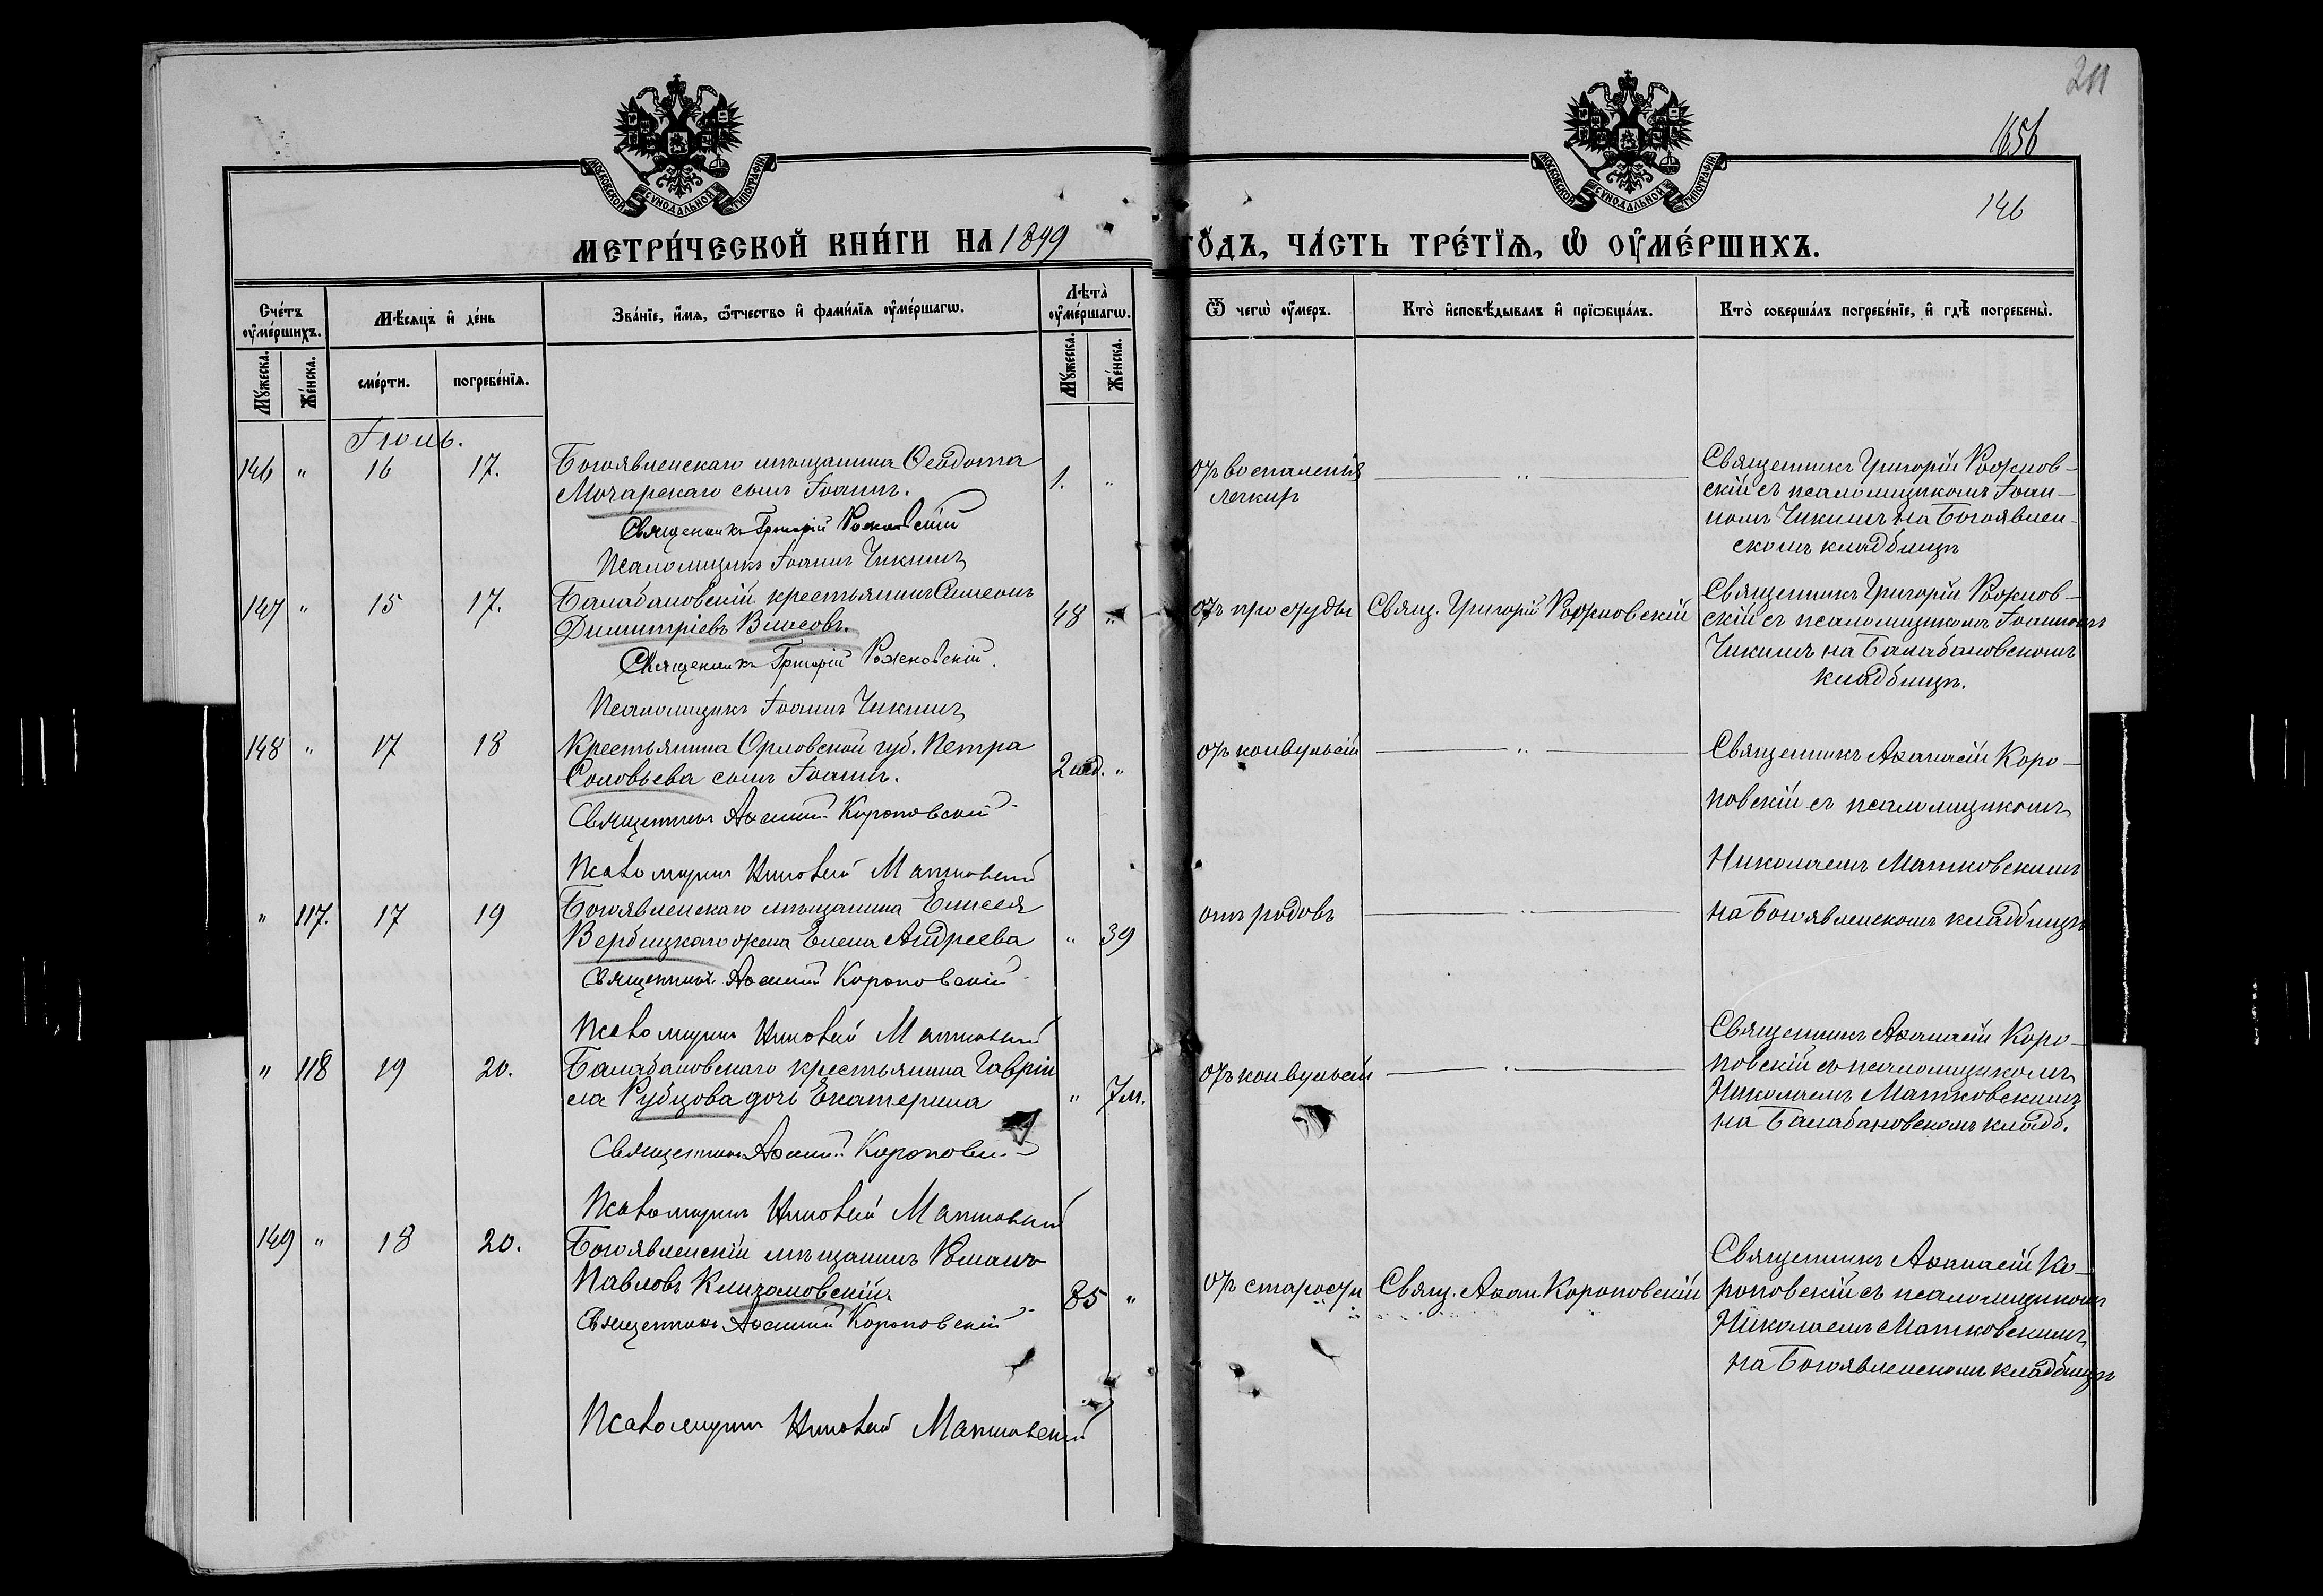 211
1656
146
МОСКОВСКОЙ СѴНОДАЛЬНОЙ ТИПОГРАФІИ
МОСКОВСКОЙ СѴНОДАЛЬНОЙ ТИПОГРАФІИ
МЕТРИ́ЧЕСКОЙ КНИ́ГИ НА 1899
ГО́ДЪ, ЧА́СТЬ ТРЕ́ТІѦ, Ѡ ОУМЕ́РШИХЪ.
Сче́тъ оуме́ршихъ.
Мѣ́сяцъ и де́нь
Зва́нїе, и́мя, ѻ́тчество и фами́лїя оуме́ршагѡ.
Лѣта̀ оуме́ршагѡ.
Ѿ чегѡ̀ оу́меръ.
Кто̀ исповѣ́дывалъ и прїѡбща́лъ.
Кто̀ соверша́лъ погребе́нїе, и гдѣ̀ погребены̀.
Му́жеска.
Же́нска.
сме́рти.
погребе́нїя.
Му́жеска.
Же́нска.
Іюль.
146 " 16 17. Богоявленскаго мѣщанина Ѳеодота
Мочарскаго сынъ Іоаннъ. 1. "
Священникъ Григорій Рожновскій
Псаломщикъ Іоаннъ Чикинъ
отъ воспаленія
легкихъ
— " —
Священникъ Григорій Рожнов-
скій съ псаломщикомъ Іоан-
номъ Чикинъ на Богоявлен-
скомъ кладбищѣ
147 " 15 17. Балабановскій крестьянинъ Симеонъ
Димитріевъ Власовъ. 48 "
Священникъ Григорій Рожновскій.
Псаломщикъ Іоаннъ Чикинъ
отъ простуды
Свящ. Григорій Рожновскій
Священникъ Григорій Рожнов-
скій съ псаломщикомъ Іоанномъ
Чикинъ на Балабановскомъ
кладбищѣ.
148 " 17 18 Крестьянина Орловской губ. Петра
Соловьева сынъ Іоаннъ. 2 нед. "
Священникъ Аѳанасій Короповскій
Псаломщикъ Николай Матковскій
отъ конвульсій
— " —
Священникъ Аѳанасій Коро-
повскій съ псаломщикомъ
Николаемъ Матковскимъ
на Богоявленскомъ кладбищѣ
" 117. 17 19 Богоявленскаго мѣщанина Елисея
Вербицкаго жена Елена Андреева " 39
Священникъ Аѳанасій Короповскій
Псаломщикъ Николай Матковскій
отъ родовъ
— " —
" 118 19 20. Балабановскаго крестьянина Гаврі
ила Рубцова дочь Екатерина " 7 м.
Священникъ Аѳанасій Короповскій
Псаломщикъ Николай Матковскій
отъ конвульсій
— " —
Священникъ Аѳанасій Коро-
повскій съ псаломщикомъ
Николаемъ Матковскимъ
на Балабановскомъ кладб.
149 " 18 20. Богоявленскій мѣщанинъ Романъ
Павловъ 85 "
Священникъ Аѳанасій Короповскій
Псаломщикъ Николай Матковскій
отъ старости
Свящ. Аѳан. Короповскій
Священникъ Аѳанасій Ко-
роповскій съ псаломщикомъ
Николаемъ Матковскимъ
на Богоявленскомъ кладбищѣ